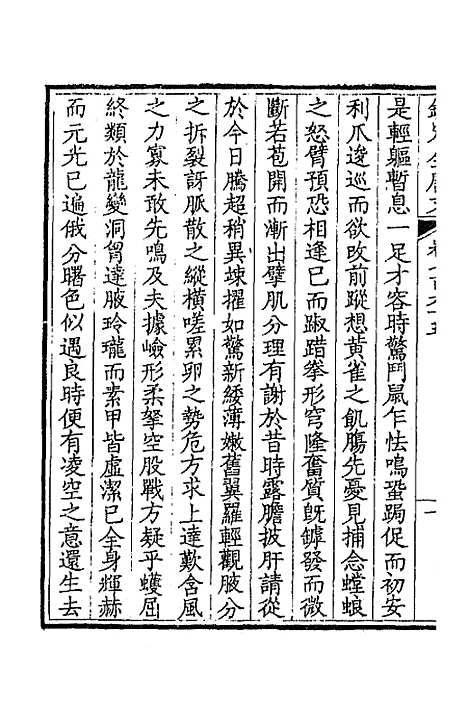 是輕軀暫息一足才容時驚鬥鼠乍怯鳴蛩跼促而初安
利爪逡巡而欲改前蹤想黃雀之飢腸先憂見捕念螳蜋
之怒臂預恐相逢已而踧踖拳形穹隆奮質旣罅發而微
斷若苞開而漸出擘肌分理有謝於昔時露膽披肝請從
於今日騰超稍異竦擢如驚新緌薄嫩舊翼羅輕觀腋分
之拆裂訝脈散之縱橫嗟累卵之勢危方求上達歎含風
之力寡未敢先鳴及夫據嶮形柔拏空股戰方疑乎蠖屈
終類於龍變洞胷達腋玲瓏而素甲皆虛潔已全身輝赫
而元光已遍俄分曙色似遇良時便有凌空之意還生去